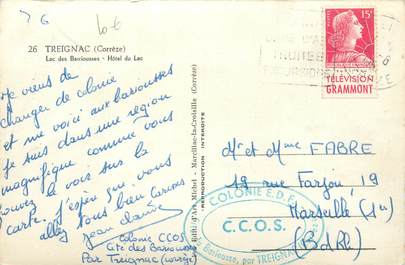 76
10€
26 TREIGNAC (Corrèze)
Lac des Barriousses - Hôtel du Lac
Je viens de
changer de colonie
et me voici aux barriousses
Je suis dans une région
magnifique comme vous
pouvez le voir sur la
carte. J'espère que vous
allez tous bien
Jean Claude
Colonie CCOS
Cité des Barriousses
Par Treignac (Corrèze)
Edit. d'Art Michel - Marcillac-la-Croisille (Corrèze)
REPRODUCTION INTERDITE
15F
TÉLÉVISION
GRAMMONT
Mr et Mme FABRE
19 rue Farjon, 19
Marseille (1er)
(B.d.Rh)
COLONIE E.D.F.
C.C.O.S.
Barriousse, par TREIGNAC